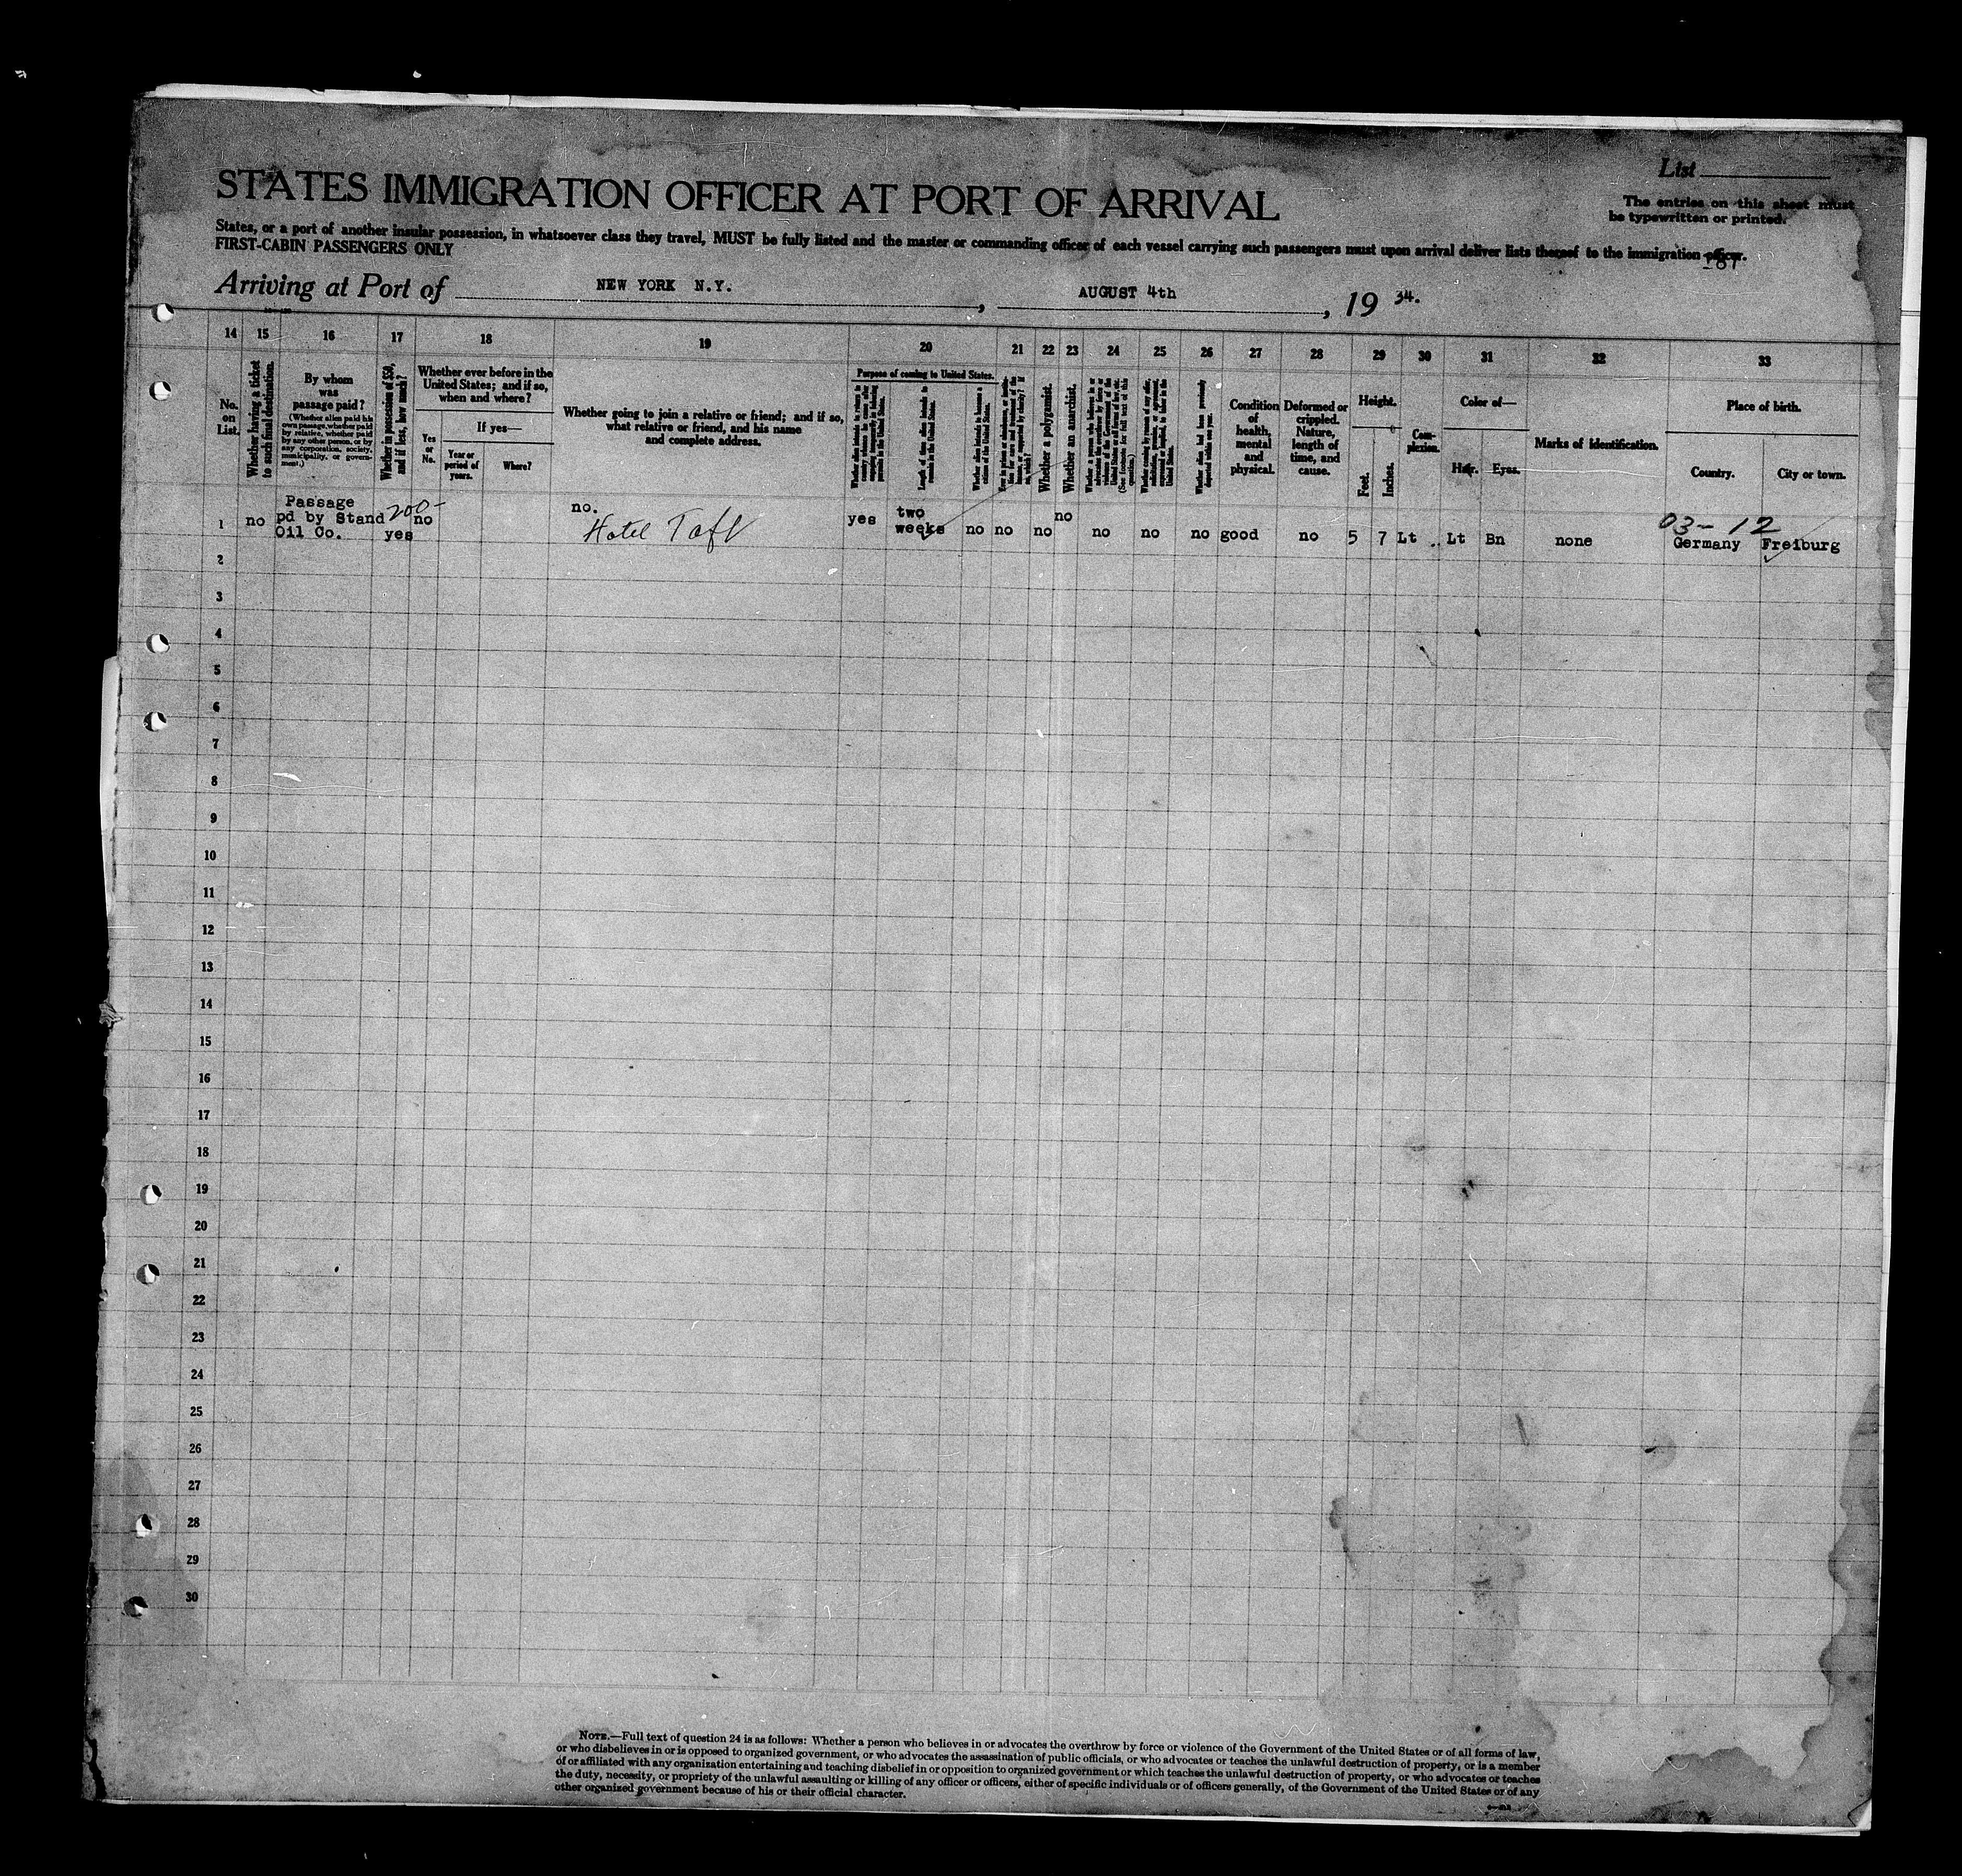 List
STATES IMMIGRATION OFFICER AT PORT OF ARRIVAL
The entries on this sheet must
be typewritten or printed.
States, or a port of another insular possession, in whatsoever class they travel, MUST be fully listed and the master or commanding officer of each vessel carrying such passengers must upon arrival deliver lists thereof to the immigration officer.
FIRST-CABIN PASSENGERS ONLY
Arriving at Port of NEW YORK N.Y. , AUGUST 4th , 19 34.
14 15 16 17 18 19 20 21 22 23 24 25 26 27 28 29 30 31 32 33
No. on List.
Whether having a ticket to such final destination.
By whom was passage paid?
(Whether alien paid his own passage, whether paid by relative, whether paid by any other person, or by any corporation, society, municipality, or government.)
Whether in possession of $50, and if less, how much?
Whether ever before in the United States; and if so, when and where?
Yes or No.
If yes—
Year or period of years.
Where?
Whether going to join a relative or friend; and if so, what relative or friend, and his name and complete address.
Purpose of coming to United States.
Length of time alien intends to remain in the United States.
Whether alien intends to become a citizen of the United States.
Whether a polygamist.
Whether an anarchist.
Whether alien had been previously deported within one year.
Condition of health, mental and physical.
Deformed or crippled. Nature, length of time, and cause.
Height.
Feet.
Inches.
Complexion.
Color of—
Hair.
Eyes.
Marks of Identification.
Place of birth.
Country.
City or town.
1 no Passage pd by Stand Oil Co. 200- yes no no. Hotel Taft yes two weeks no no no no no no no good no 5 7 Lt Lt Bn none 03-12 Germany Freiburg
2
3
4
5
6
7
8
9
10
11
12
13
14
15
16
17
18
19
20
21
22
23
24
25
26
27
28
29
30
NOTE.—Full text of question 24 is as follows: Whether a person who believes in or advocates the overthrow by force or violence of the Government of the United States or of all forms of law,
or who disbelieves in or is opposed to organized government, or who advocates the assassination of public officials, or who advocates or teaches the unlawful destruction of property, or is a member
of or affiliated with any organization entertaining and teaching disbelief in or opposition to organized government or which teaches the unlawful destruction of property, or who advocates or teaches
the duty, necessity, or propriety of the unlawful assaulting or killing of any officer or officers, either of specific individuals or of officers generally, of the Government of the United States or of any
other organized government because of his or their official character.